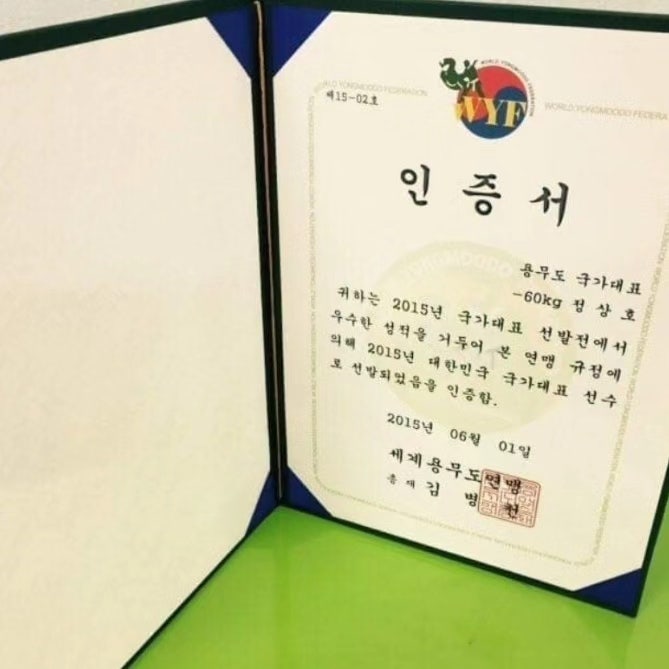 WORLD YONGMOODO FEDERATION
WYF
WORLD YONGMOODO FEDERA
제15-02호
인증서
용무도 국가대표
-60kg 정상호
귀하는 2015년 국가대표 선발전에서
우수한 성적을 거두어 본 연맹 규정에
의해 2015년 대한민국 국가대표 선수
로 선발되었음을 인증함.
2015년 06월 01일
세계용무도연맹
총재 김병천